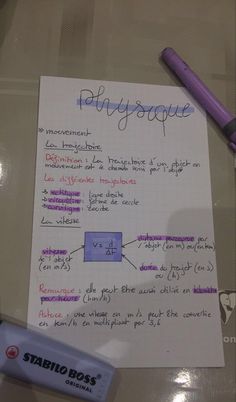 Physique
mouvement
La trajectoire
Définition : La trajectoire d'un objet en
mouvement est le chemin suivi par l'objet
Les différentes trajectoires
rectiligne : ligne droite
circulaire : forme de cercle
curviligne : courbe
La vitesse
vitesse de l'objet (en m/s)
V = d / Δt
distance parcourue par l'objet (en m) ou (en km)
durée du trajet (en s) ou (h)
Remarque : elle peut être aussi utilisée en kilomètre
par heure (km/h)
Astuce : une vitesse en m/s peut être convertie
en km/h en multipliant par 3,6
STABILO BOSS
ORIGINAL